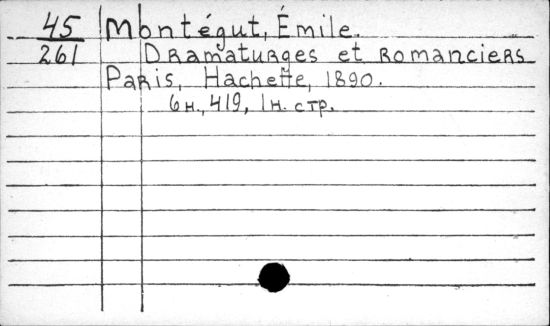 45 Montégut, Émile.
261 Dramaturges et romanciers
Paris, Hachette, 1890.
6 н., 419, 1 н. стр.